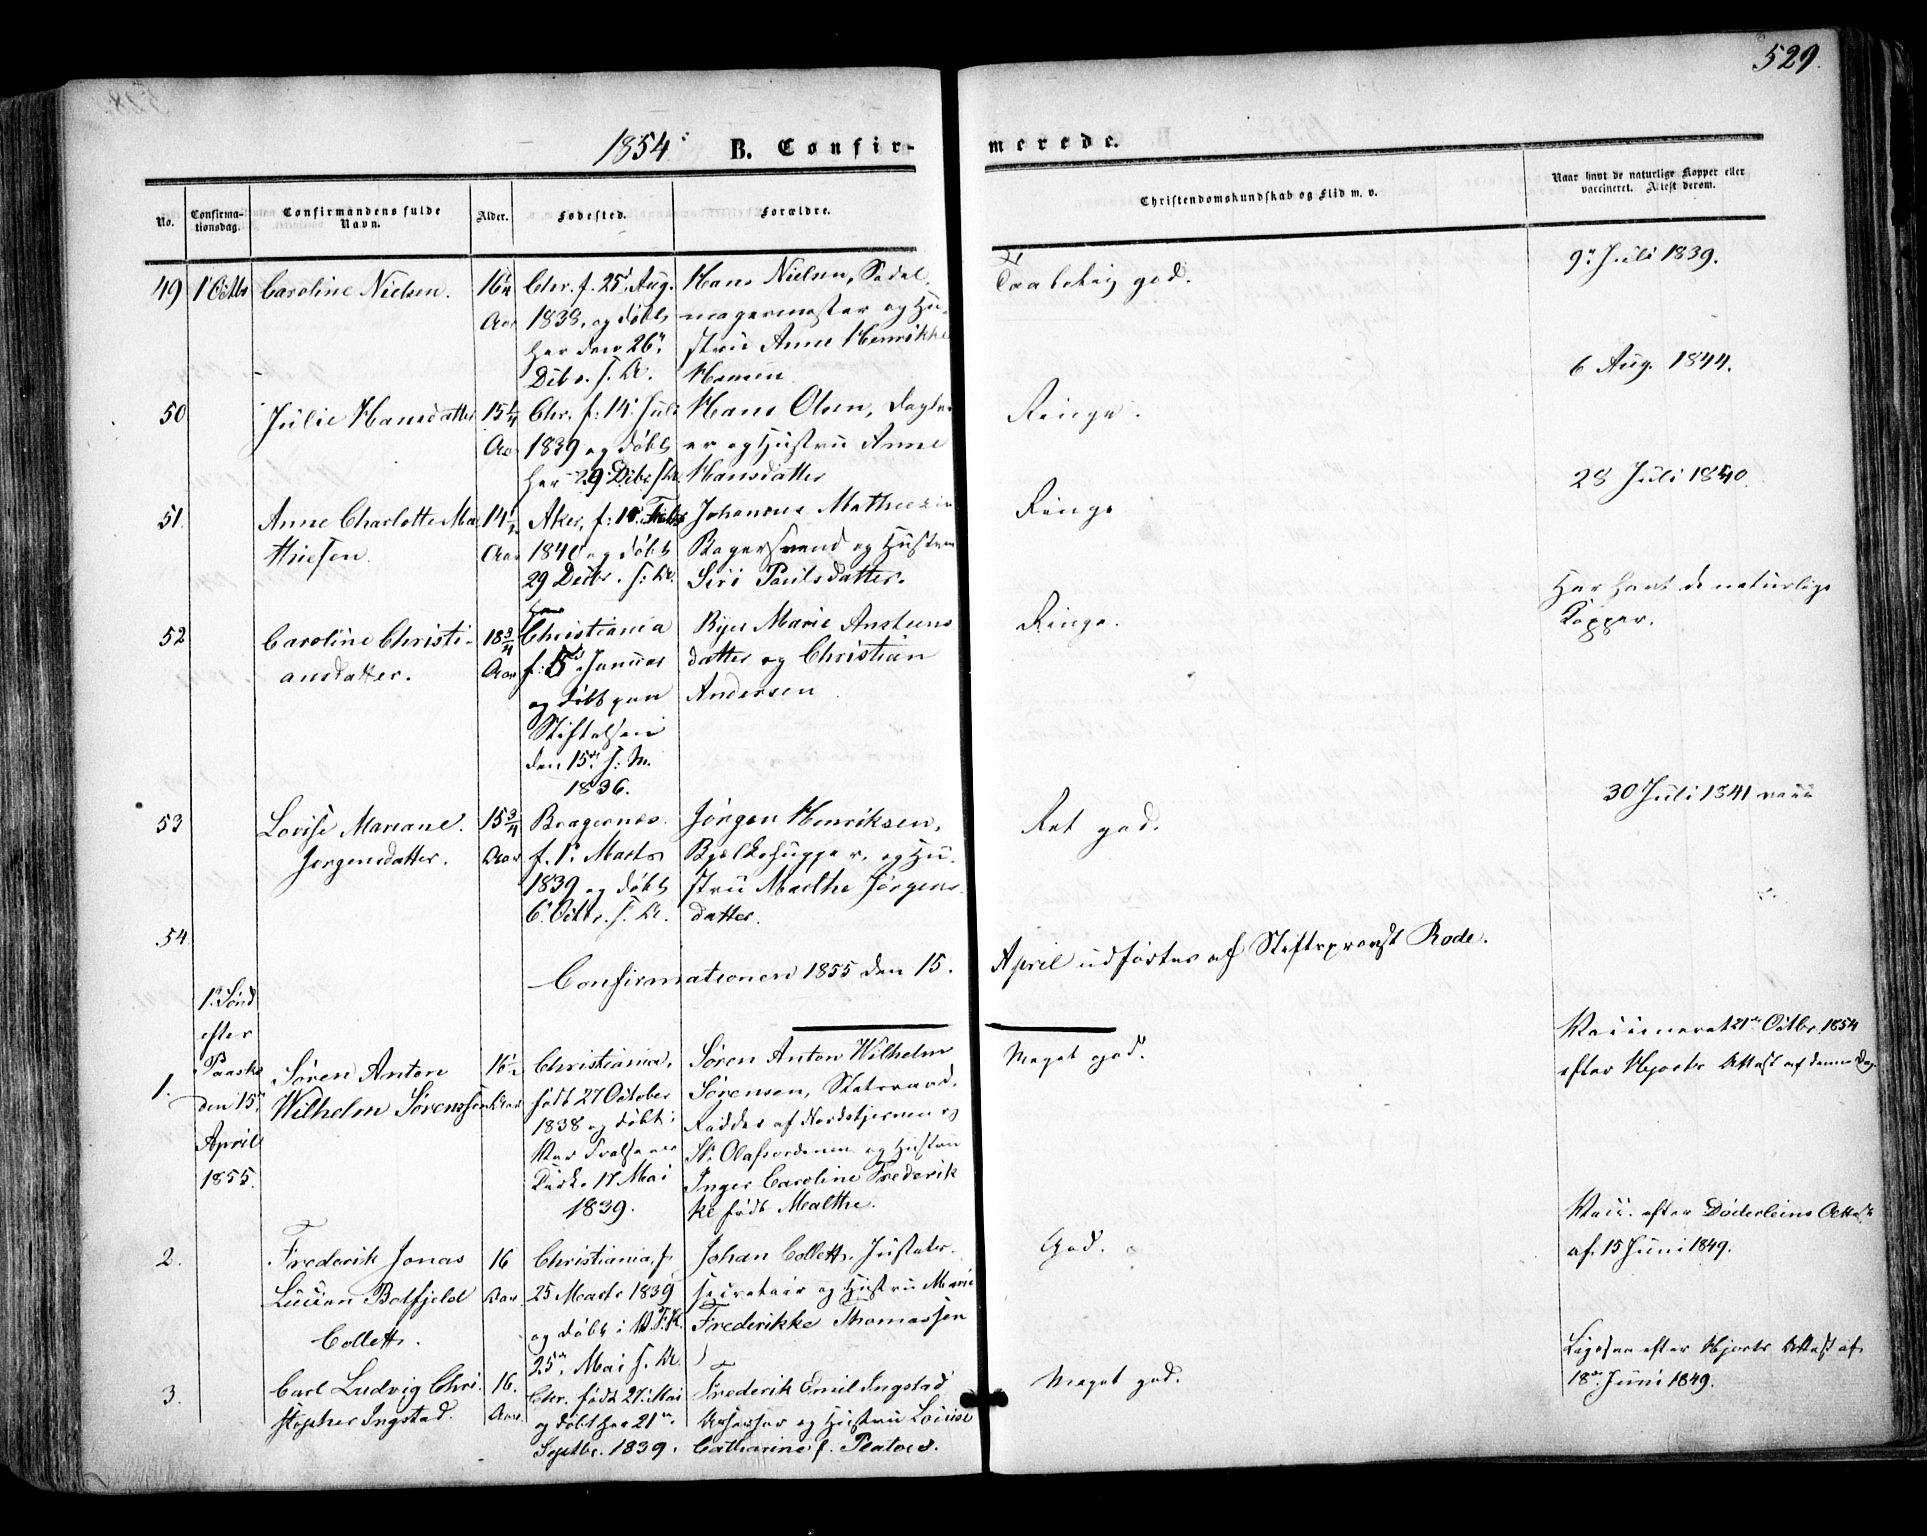 529.
1854 B. Confirmerede.
No.
Confirmationsdag.
Confirmandens fulde Navn.
Alder.
Fødested.
Forældre.
Christendomskundskab og Flid m. v.
Naar havt de naturlige Kopper eller vaccineret. Attest derom.
49 1' Octbr Caroline Nielsen. 16 Aar
Chr. f. 25' Aug.
1838, og døbt
her den 26'
Debr. s. A.
Hans Nielsen, Sadel
magermester og Hu-
stru Anne Henrikke
Hansen
god.
9' Juli 1839.
50 Julie Hansdatter 15 1/4 Aar
Chr. f: 14' Juli
1839 og døbt
her 29' Debr s. A.
Hans Olsen,
og Hustru Anne
Hansdatter
Ringe.
6 Aug. 1844.
51. Anne Charlotte Ma
thiesen. 14 1/2 Aar
Aker, f: 10'
1840 og døbt
29 Decbr. s: A.
Johannes
Bagersvend og Hustru
Siri Paulsdatter.
Ringe
28 Juli 1840.
52 Caroline Christi-
ansdatter. 18 3/4 Aar
Christiania
f: 5' Januar
og døbt paa
Stiftelsen
den 15' s: M.
1836.
Marie Anstens
datter og Christian
Andersen
Ringe.
Har havt de naturlige
Kopper.
53 Lovise Mariane.
Jørgensdatter. 15 3/4 Aar
Bragernes.
f. 1' Marts
1839 og døbt
6' Octbr. s. A.
Jørgen Henriksen,
Bjelkehugger, og Hu-
stru Marthe Jørgens
datter.
Ret god.
30 Juli 1841 vacc
54
Confirmationen 1855 den 15. April udførtes af Stiftsprovst Rode.
1' Sønd
efter
Paaske
den 15'
April
1855.
1. Søren Anton
Wilhelm Sørenssen 16 1/2 Aar
Christiania,
født 27 October
1838 og døbt i
Vor Frelseres
Kirke 17 Mai
1839.
Søren Anton Wilhelm
Sørensen, Statsraad,
Ridder af Nordstjernen og
St. Olafsordenen og Hustru
Inger Caroline Frederik
ke født Malthe.
Meget god.
Vaccineret 21' Octbr. 1854
efter Hjorts Attest af denne Dag.
2. Frederik Jonas
Lucian Botfjeld
Collett. 16 Aar
Christiania, f.
25 Marts 1839
og døbt i V. F. K.
25' Mai s. A.
Johan Collett, Justits-
secretair og Hustru Marie
Frederikke Thomassen
God.
Vacc. efter Døderleins Attest
af 15 Juni 1849.
3. Carl Ludvig Chri-
stopher Ingstad. 16. Aar
Chr. født 27. Mai
og døbt her 21'
Septbr. 1839.
Frederik Emil Ingstad
Assessor og Hustru Louise
Catharine f. Platou.
Meget god.
Ligesaa efter Hjorts Attest af
18' Juni 1849.